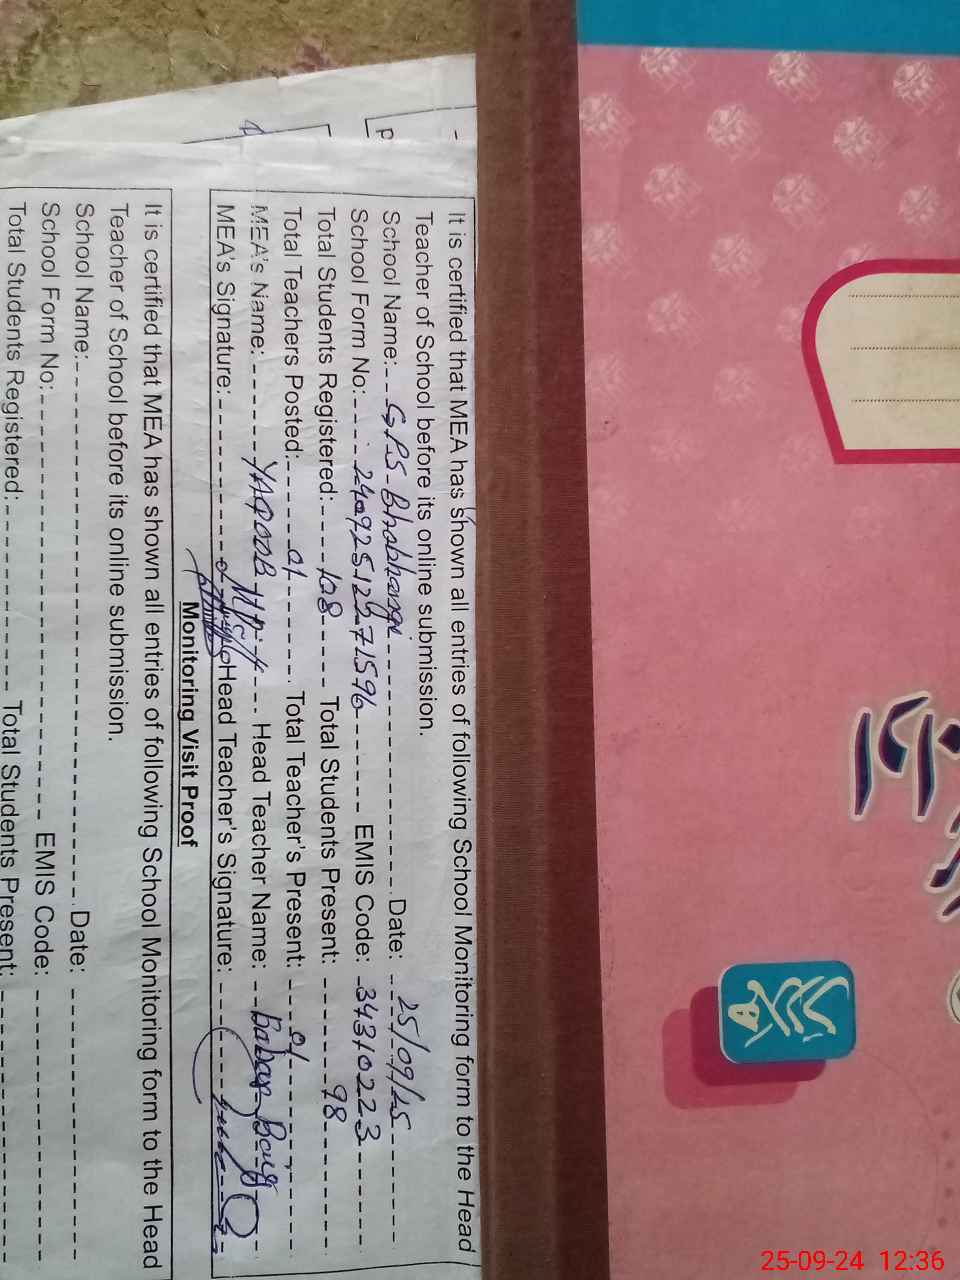 It is certified that MEA has shown all entries of following School Monitoring form to the Head
Teacher of School before its online submission.
School Name: GPS Date: 25/09/25
School Form No: EMIS Code: 34310223
Total Students Registered: 108 Total Students Present: 98
Total Teachers Posted: 01 Total Teacher's Present: 01
MEA's Name: YAQOOB Head Teacher Name: Babar Baig
MEA's Signature: Head Teacher's Signature:
Monitoring Visit Proof
It is certified that MEA has shown all entries of following School Monitoring form to the Head
Teacher of School before its online submission.
School Name: Date:
School Form No: EMIS Code:
Total Students Registered: Total Students Present:
25-09-24 12:36